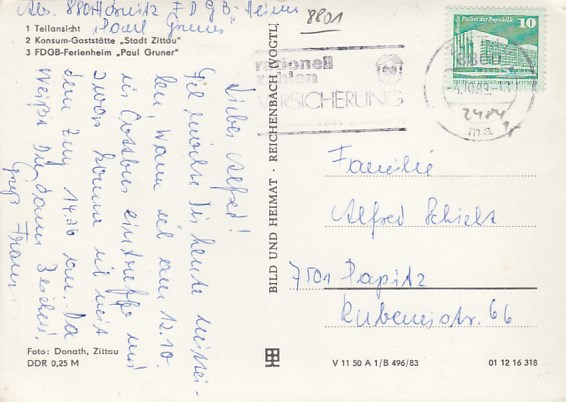 Abs. 8801 Hörnitz FDGB-Heim
"Paul Gruner"
8801
1 Teilansicht
2 Konsum-Gaststätte „Stadt Zittau"
3 FDGB-Ferienheim „Paul Gruner"
Lieber Alfred!
Hiermit möchte Dir heute mittei-
len, wann wir am 12.10.
in Cottbus eintreffen und
zwar kommen wir mit
dem Zug 14.36 an. Da
weißt Du dann Bescheid.
Gruß Franz.
Foto: Donath, Zittau
DDR 0,25 M
BILD UND HEIMAT · REICHENBACH (VOGTL)
rationell
zahlen
VERSICHERUNG
Palast der Republik
10
2484
ma
Familie
Alfred Schielt
7501 Papitz
Rubensstr. 66
V 11 50 A 1/B 496/83
01 12 16 318